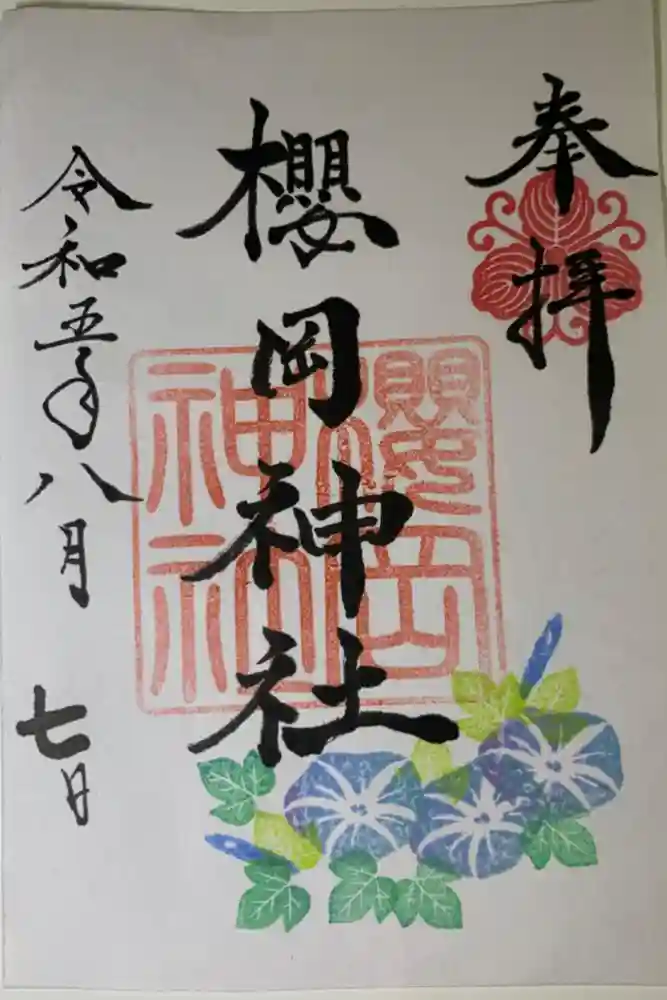 奉拝
櫻岡神社
櫻岡
神社
令和五年八月七日